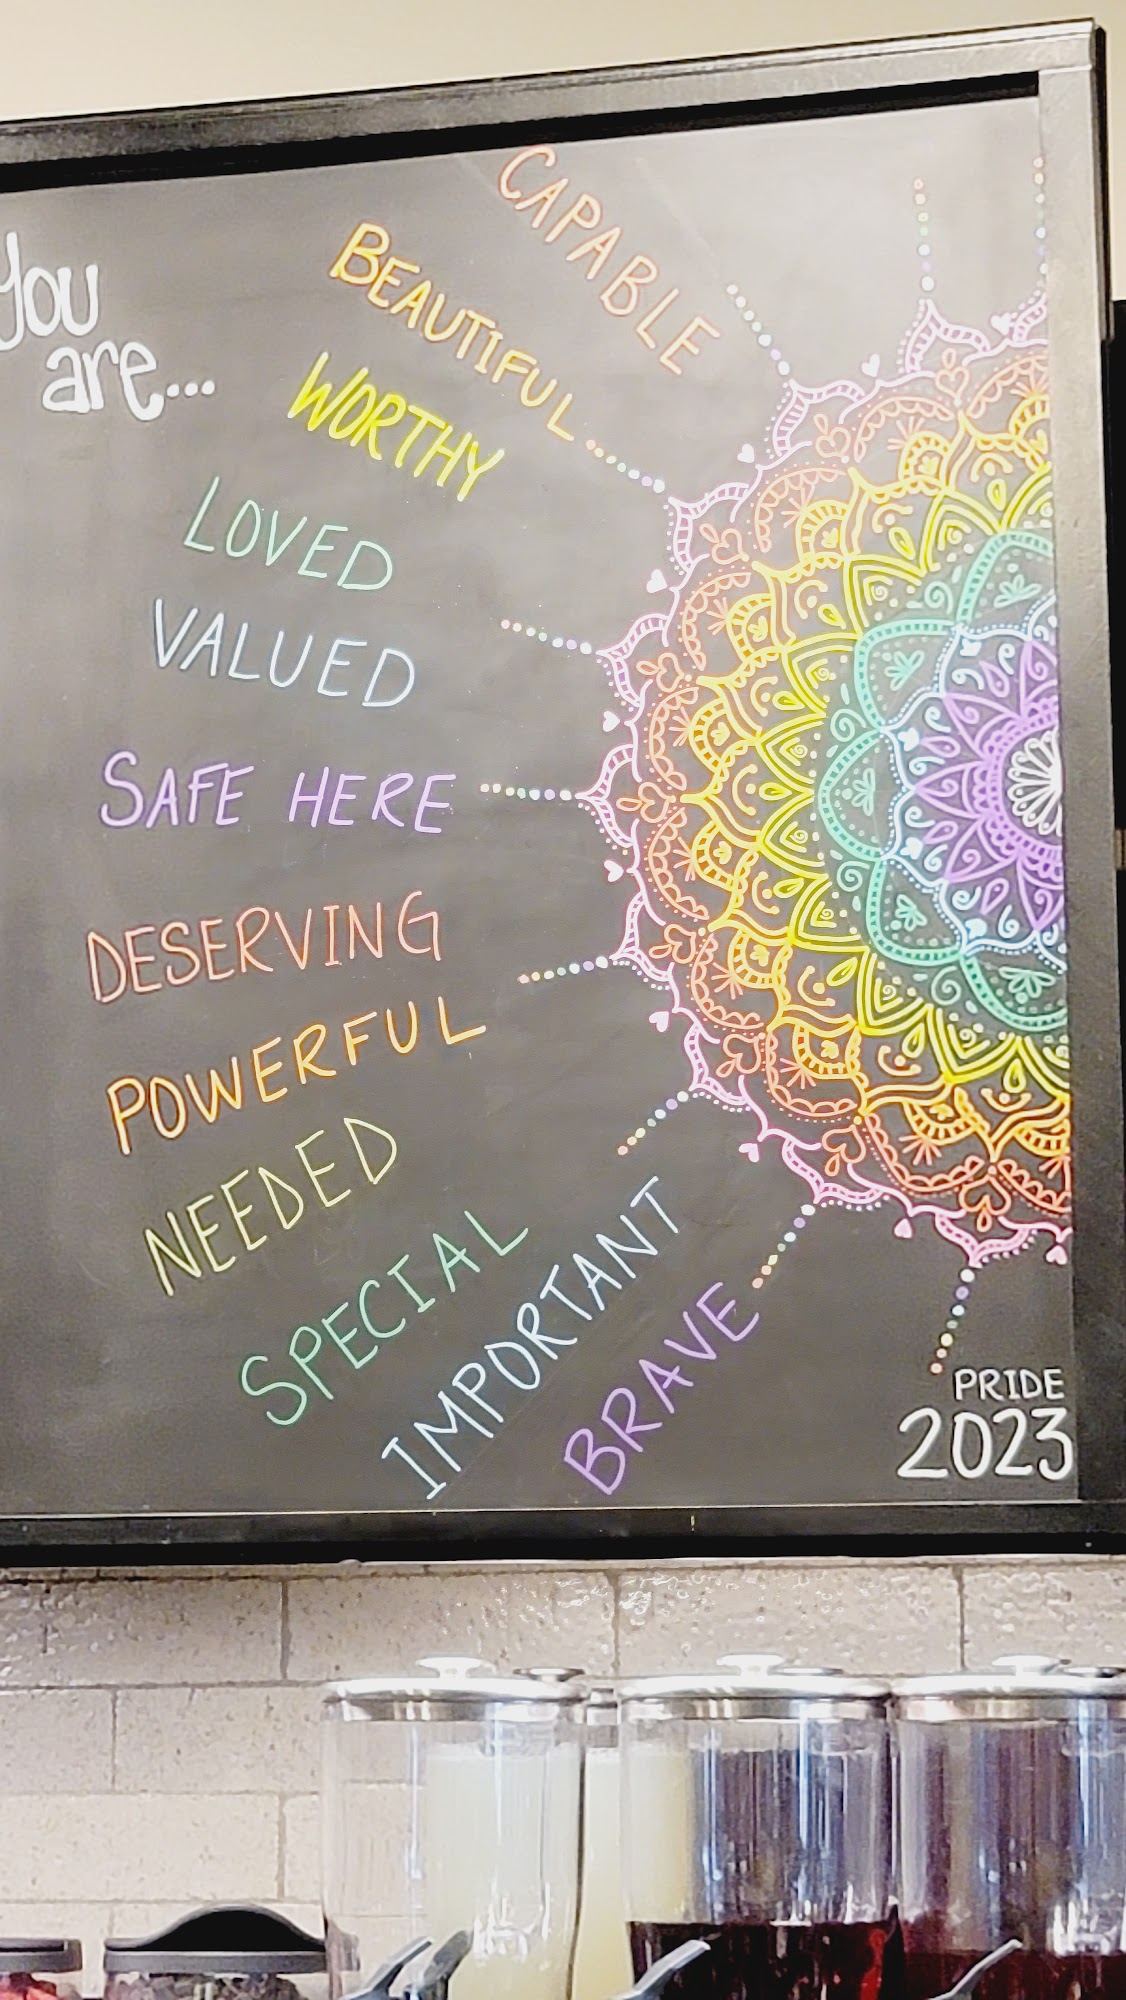 You
are...
CAPABLE
BEAUTIFUL
WORTHY
LOVED
VALUED
SAFE HERE
DESERVING
POWERFUL
NEEDED
SPECIAL
IMPORTANT
BRAVE
PRIDE
2023